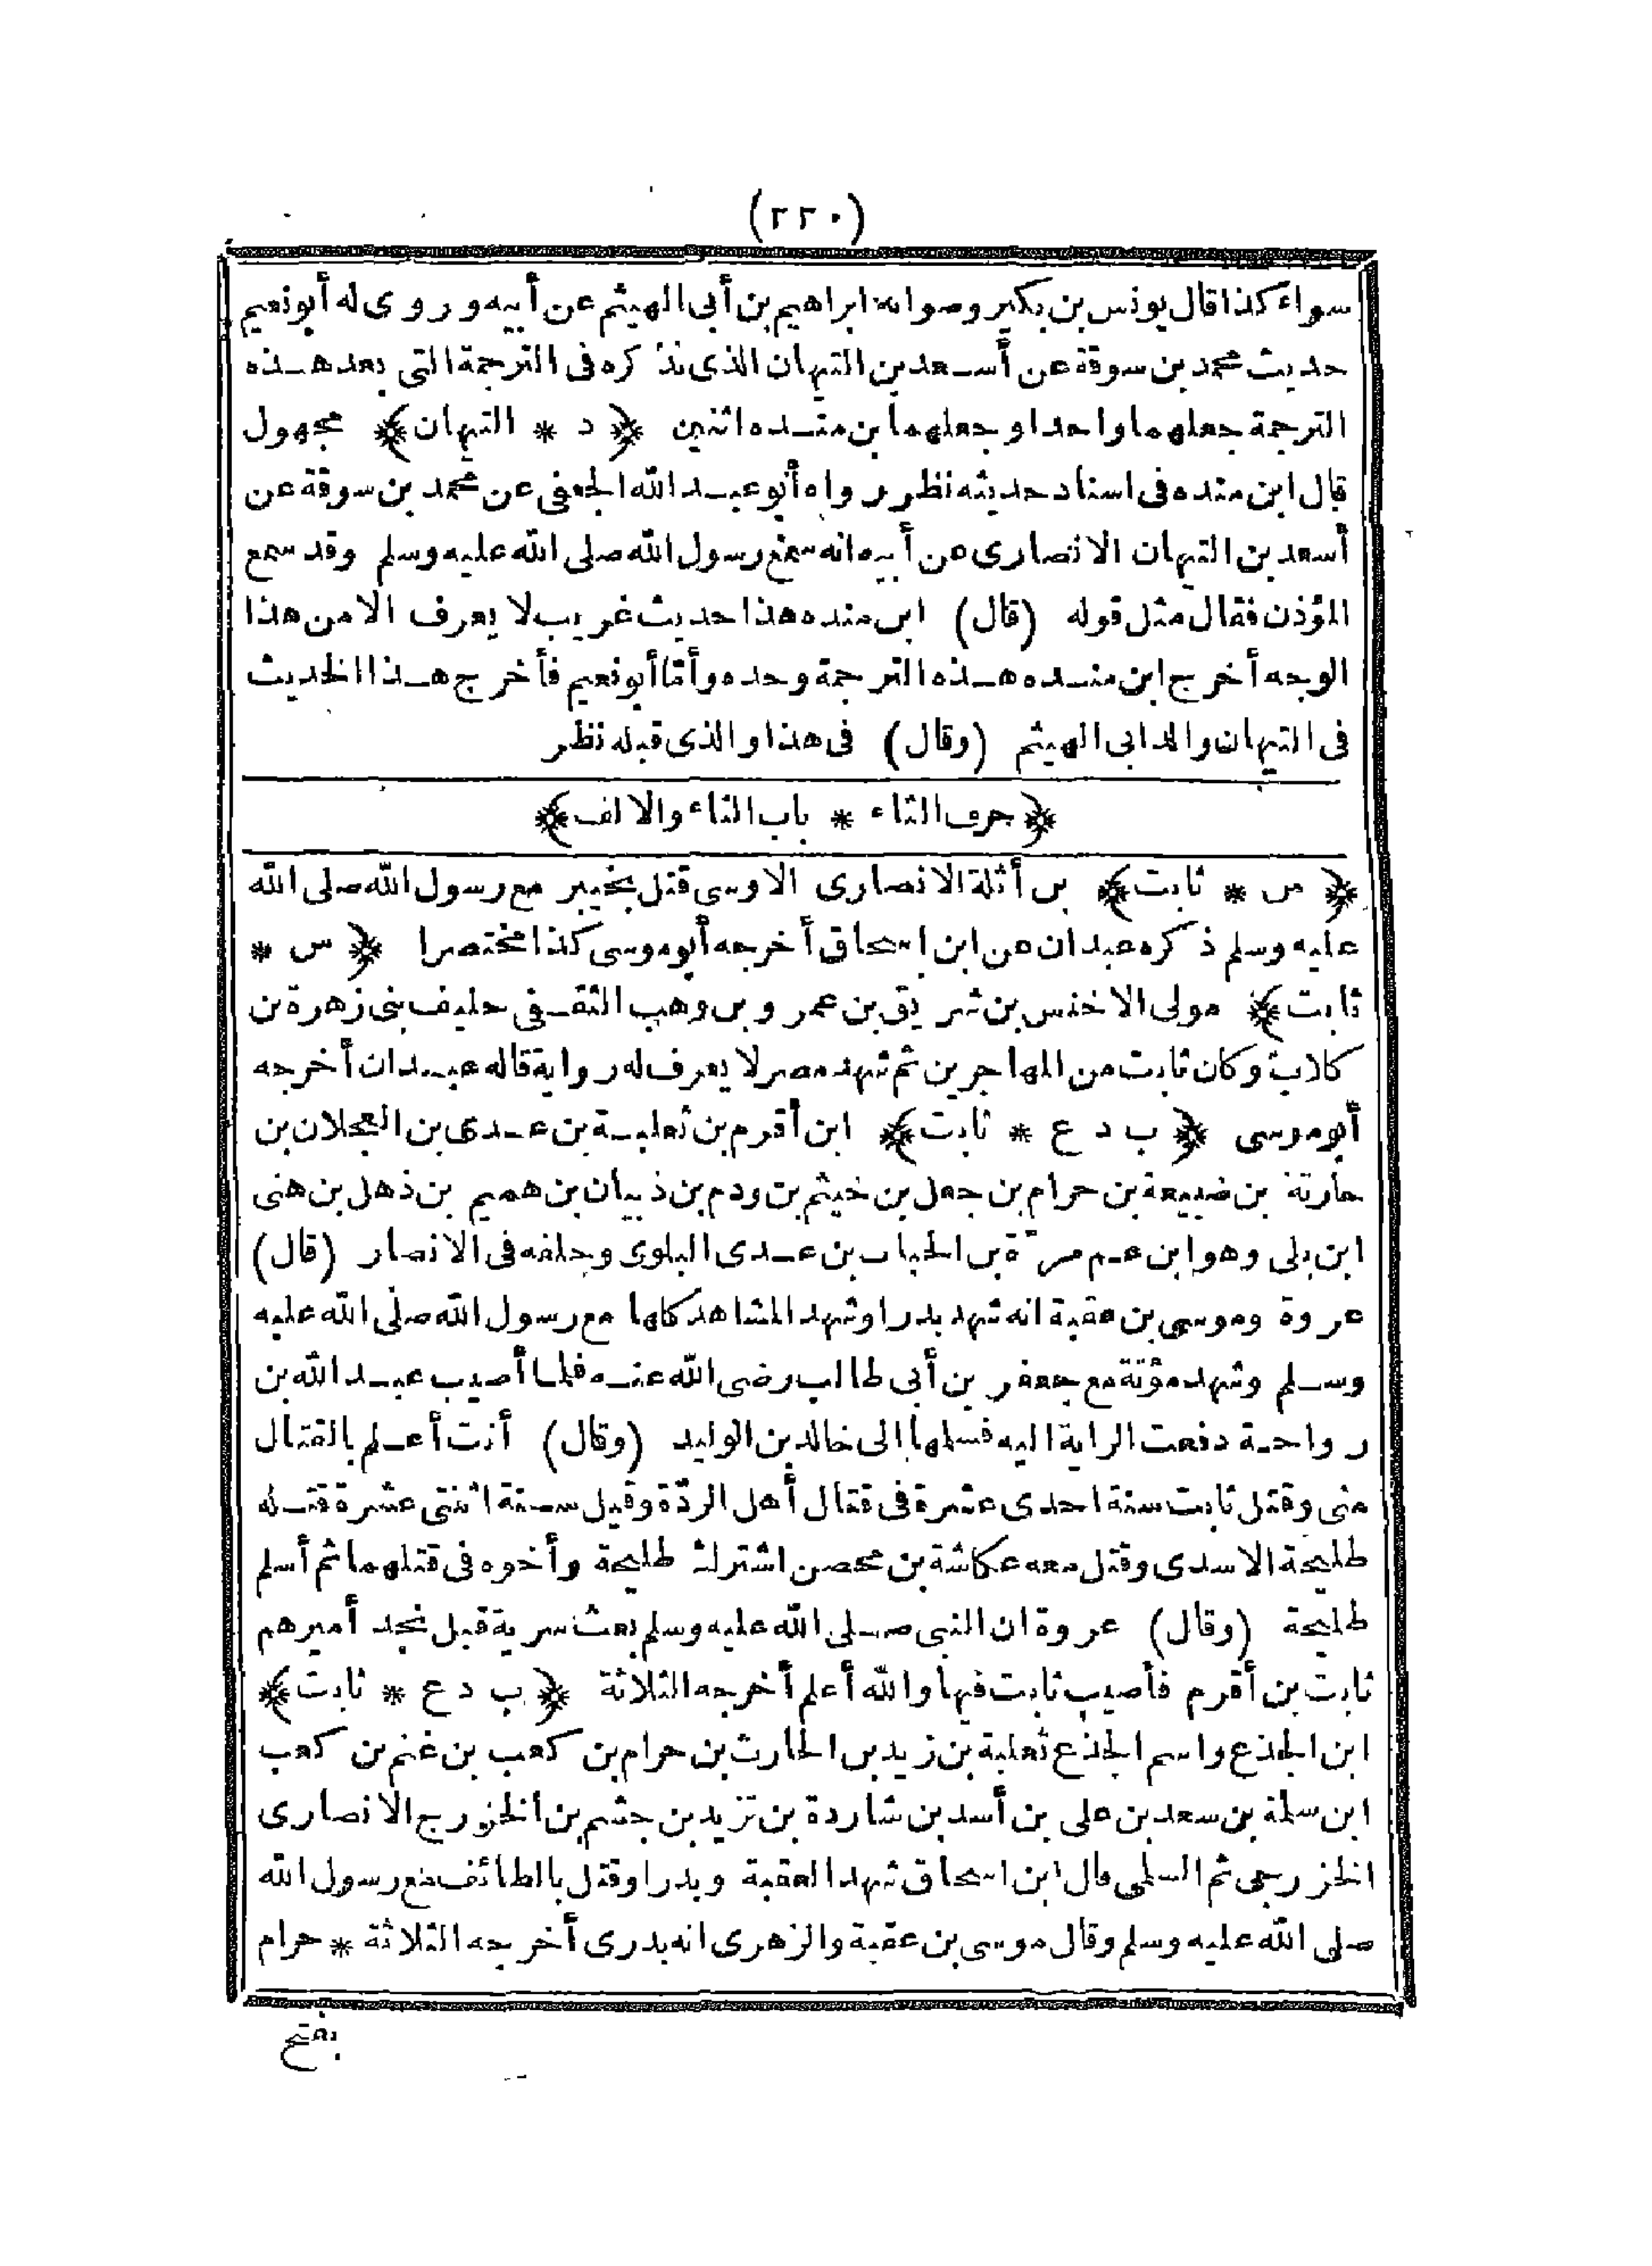 (٢٢٠)
سواء كذا قال يونس بن بكير وصوابه ابراهيم بن أبى الهيثم عن أبيه وروى له أبو نعيم
حديث محمد بن سوقة عن أسعد بن التيهان الذى نذكره فى الترجمة التى بعد هذه
الترجمة جعلهما واحدا وجعلهما ابن منده اثنين ﴿د * التيهان﴾ مجهول
قال ابن منده فى اسناد حديثه نظر رواه أبو عبد الله الجعفى عن محمد بن سوقة عن
أسعد بن التيهان الانصارى عن أبيه انه سمع رسول الله صلى الله عليه وسلم وقد سمع
المؤذن فقال مثل قوله (قال) ابن منده هذا حديث غريب لا يعرف الا من هذا
الوجه أخرج ابن منده هذه الترجمة وحده وأمّا أبو نعيم فأخرج هذا الحديث
فى التيهان والد ابى الهيثم (وقال) فى هذا والذى قبله نظر
﴿حرف الثاء * باب الثاء والالف﴾
﴿س * ثابت﴾ بن أثلة الانصارى الاوسى قتل بخيبر مع رسول الله صلى الله
عليه وسلم ذكره عبدان عن ابن اسحاق أخرجه أبو موسى كذا مختصرا ﴿س *
ثابت﴾ مولى الاخنس بن شريق بن عمرو بن وهب الثقفى حليف بنى زهرة بن
كلاب وكان ثابت من المهاجرين ثم شهد مصر لا يعرف له رواية قاله عبدان أخرجه
أبو موسى ﴿ب د ع * ثابت﴾ ابن أقرم بن ثعلبة بن عدى بن العجلان بن
حارثة بن ضبيعة بن حرام بن جعل بن خيثم بن ودم بن ذبيان بن هميم بن ذهل بن هنى
ابن بلى وهو ابن عم مرّة بن الحباب بن عدى البلوى وحلفه فى الانصار (قال)
عروة وموسى بن عقبة انه شهد بدرا وشهد المشاهد كلها مع رسول الله صلى الله عليه
وسلم وشهد مؤتة مع جعفر بن أبى طالب رضى الله عنه فلما أصيب عبد الله بن
رواحة دفعت الراية اليه فسلمها الى خالد بن الوليد (وقال) أنت أعلم بالقتال
منى وقتل ثابت سنة احدى عشرة فى قتال أهل الردّة وقيل سنة اثنتى عشرة قتله
طليحة الاسدى وقتل معه عكاشة بن محصن اشترك طليحة وأخوه فى قتلهما ثم أسلم
طليحة (وقال) عروة ان النبى صلى الله عليه وسلم بعث سرية قبل نجد أميرهم
ثابت بن أقرم فأصيب ثابت فيها والله أعلم أخرجه الثلاثة ﴿ب د ع * ثابت﴾
ابن الجذع واسم الجذع ثعلبة بن زيد بن الحارث بن حرام بن كعب بن غنم بن كعب
ابن سلمة بن سعد بن على بن أسد بن شاردة بن تزيد بن جشم بن الخزرج الانصارى
الخزرجى ثم السلمى قال ابن اسحاق شهد العقبة وبدرا وقتل بالطائف مع رسول الله
صلى الله عليه وسلم وقال موسى بن عقبة والزهرى انه بدرى أخرجه الثلاثة * حرام
بفتح